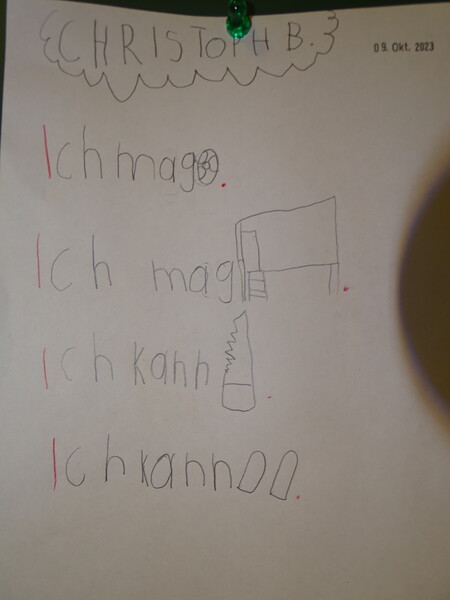 CHRISTOPH B.
09. Okt. 2023
Ich mag .
Ich mag .
Ich kann .
Ich kann .